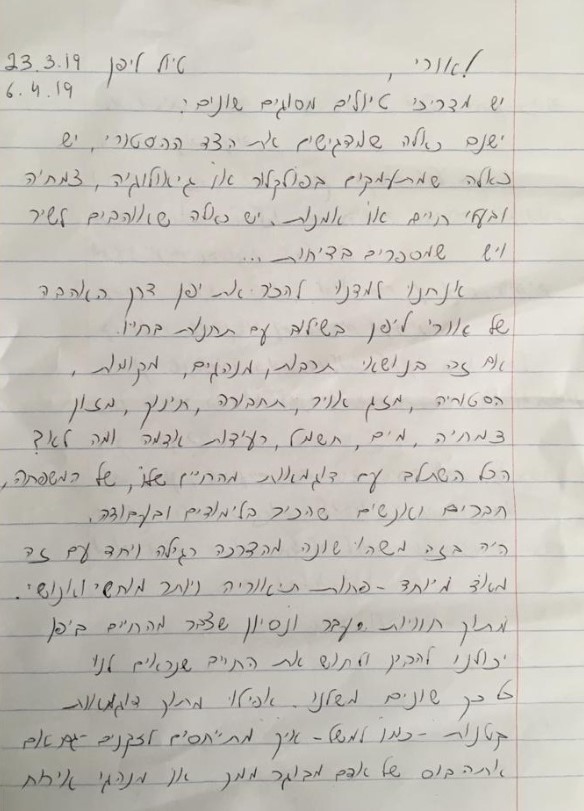 לאורי, טיול ליפן 23.3.19
6.4.19
יש מדריכי טיולים מסוגים שונים:
ישנם כאלה שמדגישים את הצד ההסטורי, יש
כאלה שמתעמקים בפולקלור או גיאולוגיה, צמחיה
ובעלי חיים או אומנות. יש כאלה שאוהבים לשיר
ויש שמספרים בדיחות...
אנחנו למדנו להכיר את יפן דרך האהבה
של אורי ליפן בשילוב עם תחנות בחייו.
אם זה בנושאי תרבות, מנהגים, מקומות,
הסטוריה, מזג אויר, תחבורה, חינוך, מזון
צמחיה, מים, חשמל, רעידות אדמה ומה לא?
הכל השתלב עם דוגמאות מהחיים שלו, של המשפחה,
חברים ואנשים שהכיר בלימודים ובעבודה.
היה בזה משהו שונה מהדרכה רגילה ויחד עם זה
מאוד מיוחד - פחות תיאוריה ויותר מוחשי ואנושי.
מתוך חוויות עבר ונסיון שצבר מהחיים ביפן
יכולנו להבין ולחוש את החיים שנראים לנו
כל כך שונים משלנו. אפילו מתוך דוגמאות
קטנות - כמו למשל - איך מתייחסים לזקנים - גם אם
אתה בוס של אדם מבוגר ממך או מנהגי אירוח